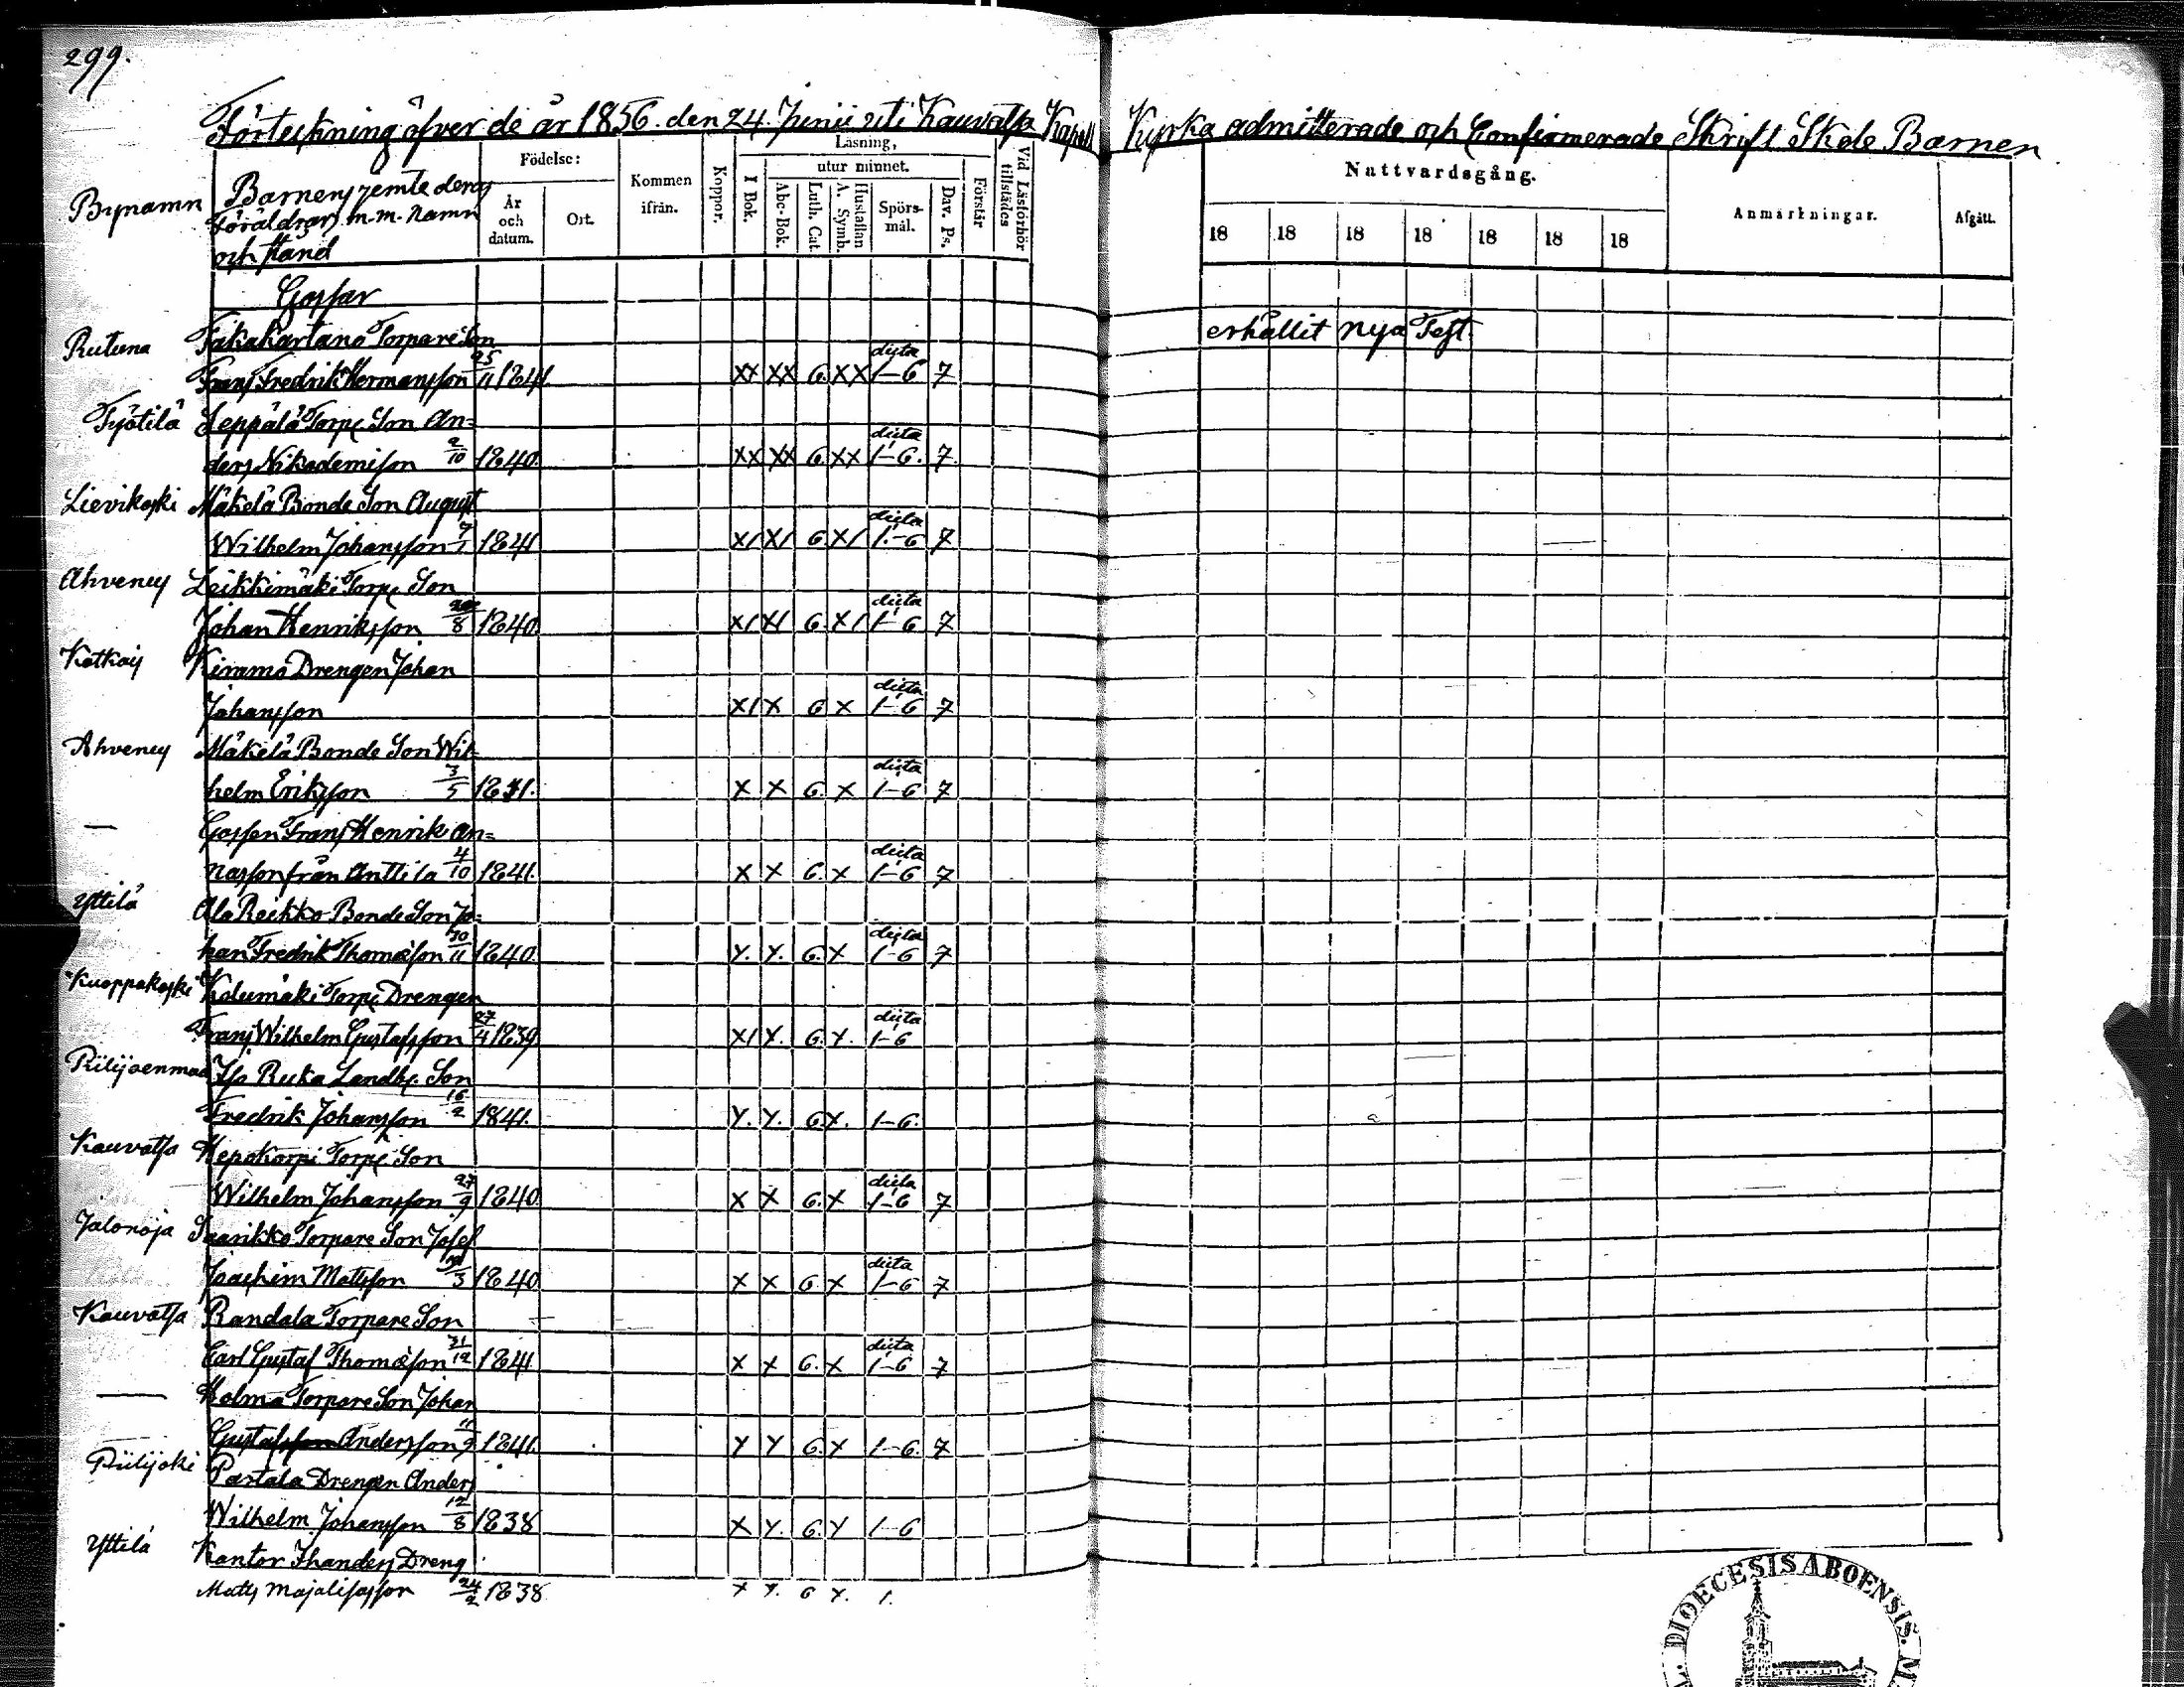 299.
Förteckning öfver de år 1856. den 24 Junii uti Kauvatsa Kapell Kyrka admitterade och Confirmerade Skrift Skole Barnen
Bynamn
Barnens jemte deras
Föräldrars m.m. Namn
och stånd
Födelse:
År och datum.
Ort.
Kommen ifrån.
Koppor.
Läsning,
utur minnet.
I Bok.
Abc-Bok.
Luth. Cat.
A. Symb.
Hustaflan
Spörsmål.
Dav. Ps.
Förstår
Vid Läsförhör tillstädes
Nattvardsgång.
18 18 18 18 18 18 18
Anmärkningar.
Afgått.
Gossar
Rutuna Takakartano Torpare Son erhållit nya Test.
Frans Fredrik Hermansson 25/11 1841. XX XX G. XX dicta 1-6 7
Työtilä Seppälä Torp. Son An=
ders Nikodemisson 2/10 1840. XX XX G. XX dicta 1-6. 7.
Lievikoski Mäkelä Bonde Son August
Wilhelm Johansson 7/1 1841 X/ X/ G. X/ dicta 1.-6 7
Ahvenus Leikkimäki Torp. Son
Johan Henriksson 8 1840. X/ X/ G. X/ dicta 1-6 7
Kimmo Drengen Johan
Johansson X/ X G X dicta 1-6 7
Ahvenus Mäkelä Bonde Son Wil-
helm Eriksson 3/5 1841. X X G. X dicta 1-6 7
— Gossen Frans Henrik An=
nasson från Anttila 4/10 1841. X X G. X dicta 1-6 7
Yttilä Ala Reikko Bonde Son Jo=
han Fredrik Thomasson 30/11 1840. Y. Y. G. X dicta 1-6 7
Kuoppakoski Kolumäki Torp. Drengen
Frans Wilhelm Gustafsson 27/4 1839 X/ Y. G. Y. dicta 1-6
Piilijoenmaa Iso Ruka Landb. Son
Fredrik Johansson 16/2 1841. Y. Y. G X. 1-6.
Kauvatsa Hepokorpi Torp. Son
Wilhelm Johansson 27/9 1840. X X G. X dicta 1-6 7
Jalonoja Saarikko Torpare Son Josef
Joachim Mattsson 3 1840. X X G X dicta 1-6 7
Kauvatsa Randala Torpare Son
Carl Gustaf Thomasson 31/12 1841. X X G. X dicta 1-6 7
— Holma Torpare Son Johan
Gustafsson Andersson 11/9 1841. Y Y G. X 1-6. 7
Piilijoki Pastala Drengen Anders
Wilhelm Johansson 12/8 1838 X Y. G. Y 1-6
Yttilä Kantor Ihanders Dreng
Matts Majalisasson 24/2 1838 X Y. G Y. 1.
DIOECESIS ABOENSIS.